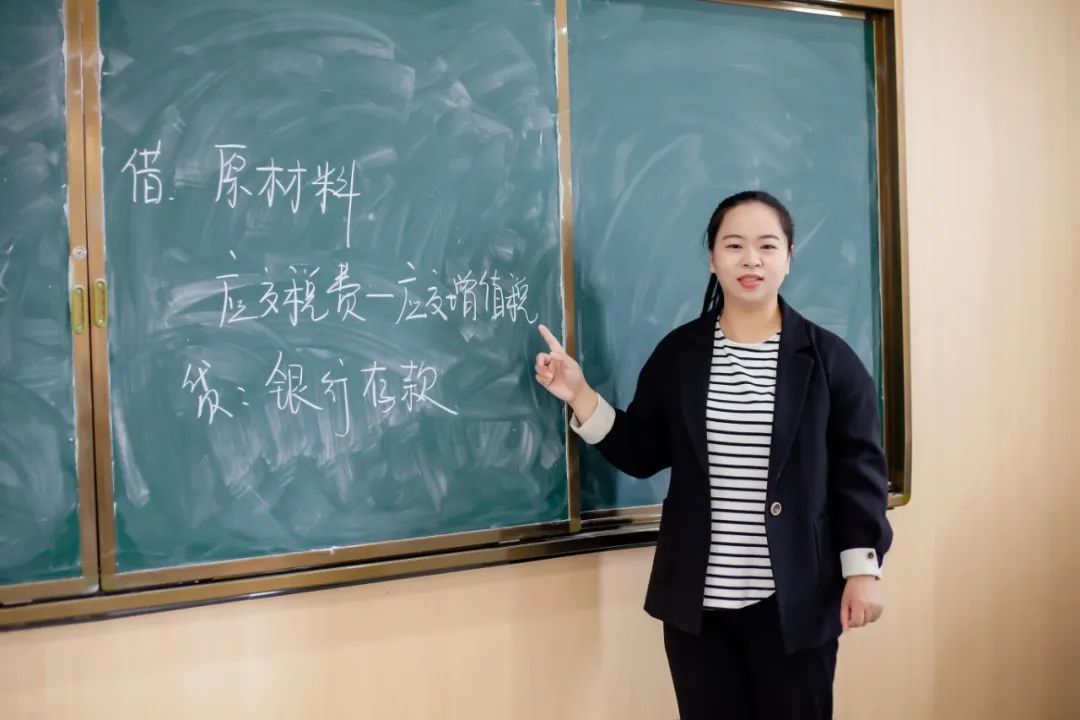 借: 原材料
应交税费一应交增值税
贷: 银行存款